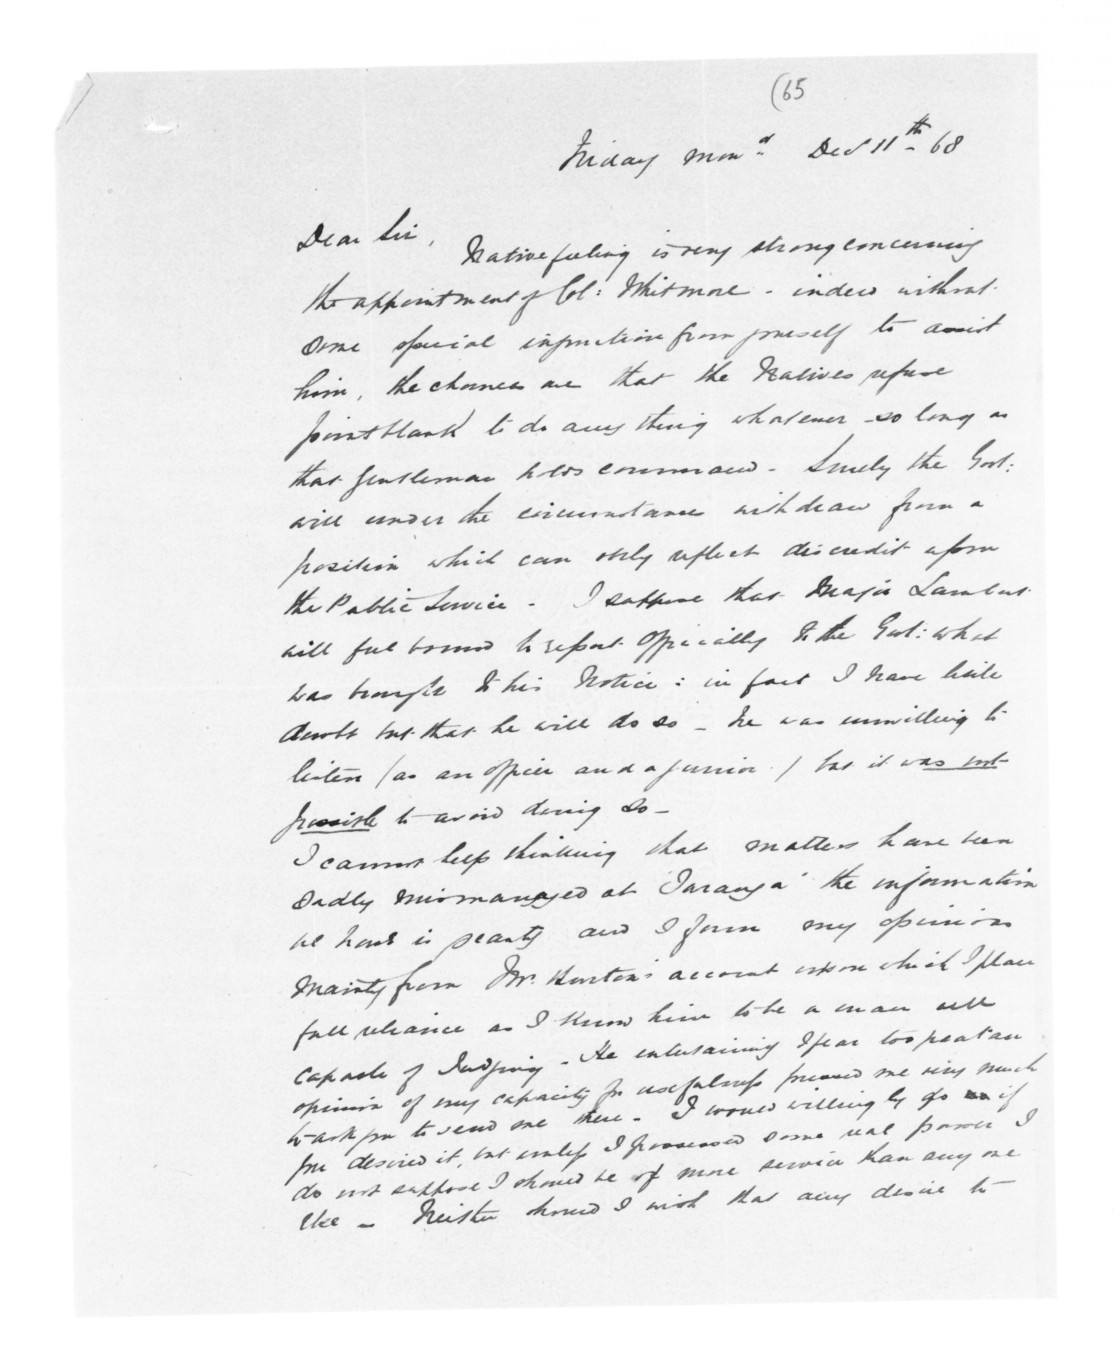 (65
Friday morn.g Dec 11th 68
Dear Sir,
Native feeling is very strong concerning
the appointment of Col: Whitmore - indeed without
some special injunction from yourself to assist
him, the chances are that the Natives refuse
point blank to do any thing whatever - so long as
that gentleman holds command - Surely the Govt:
will under the circumstances withdraw from a
position which can only reflect discredit upon
the Public Service - I suppose that Major Lambert
will feel bound to report Officially to the Govt: what
was brought to his Notice: in fact I have little
doubt but that he will do so - He was unwilling to
listen (as an officer and a junior) but it was not
possible to avoid doing so -
I cannot help thinking that matters have been
sadly mismanaged at "Turanga" the information
we have is scanty and I form my opinions
mainly from Mr. Burton's account upon which I place
full reliance as I know him to be a man well
capable of Judging - He entertaining I fear too great an
opinion of my capacity for usefulness pressed me very much
to ask you to send me there - I would willingly go if
you desired it, but unless I possessed some real power I
do not suppose I should be of more service than any one
else - Neither should I wish that any desire to